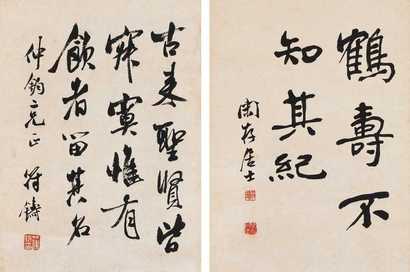 鶴壽不
知其紀
存居士
古來聖賢皆
寂寞惟有
飲者留其名
仲鈞二兄正
符鑄